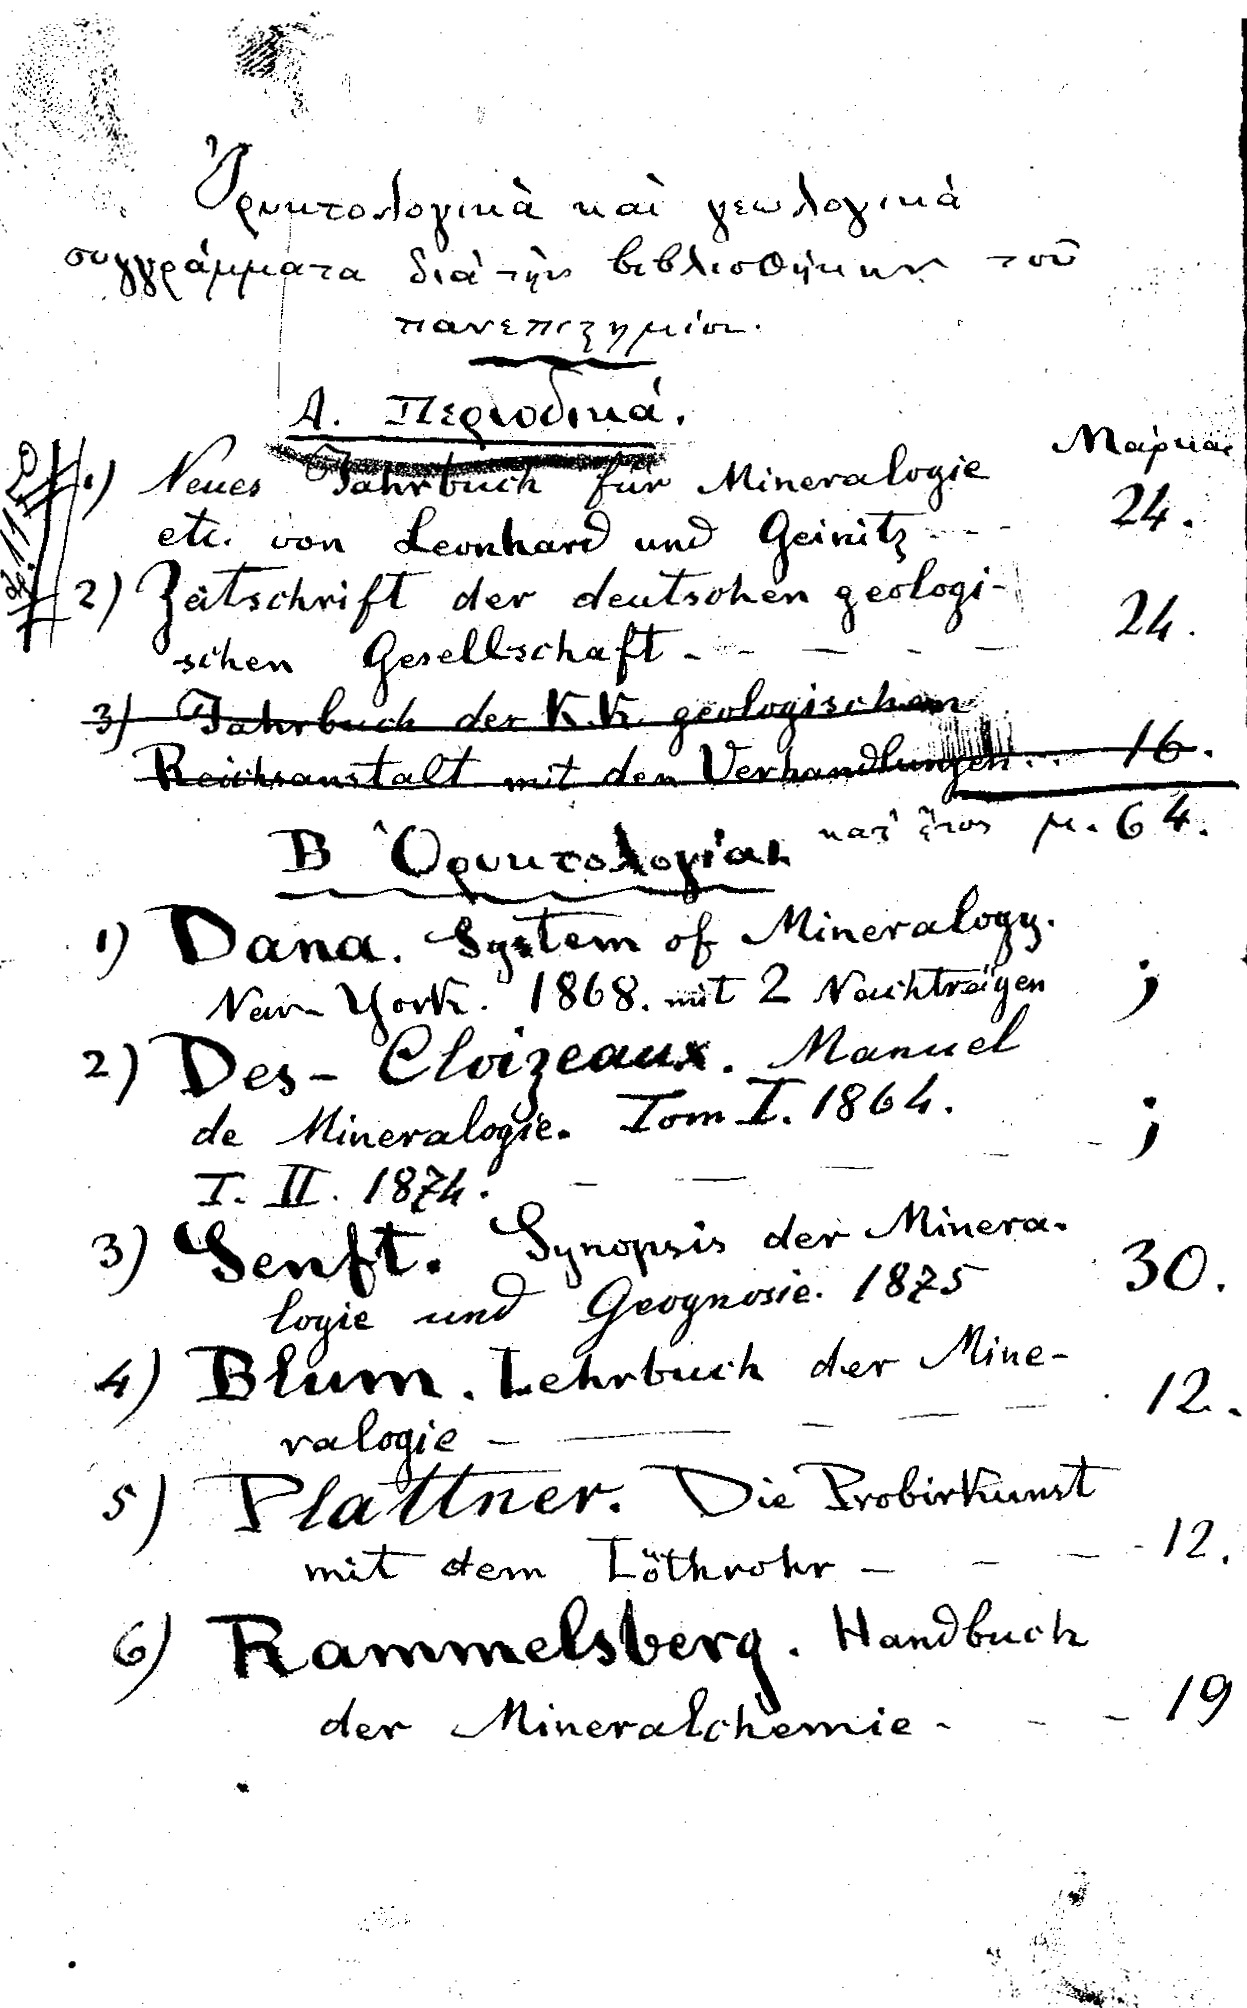 Ὀρυκτολογικὰ καὶ γεωλογικὰ
συγγράμματα διὰ τὴν βιβλιοθήκην τοῦ
πανεπιστημίου.
Α. Περιοδικά.
Μάρκαι
1) Neues Jahrbuch für Mineralogie
etc. von Leonhard und Geinitz - - - 24.
2) Zeitschrift der deutschen geologi-
schen Gesellschaft - - - - - 24.
3) Jahrbuch der K.K. geologischen
Reichsanstalt mit den Verhandlungen .. 16.
κατ' ἔτος μ. 64.
Β Ὀρυκτολογίαι
1) Dana. System of Mineralogy.
New-York. 1868. mit 2 Nachträgen ;
2) Des-Cloizeaux. Manuel
de Mineralogie. Tom I. 1864.
T. II. 1874. - - - - - ;
3) Senft. Synopsis der Minera-
logie und Geognosie. 1875 30.
4) Blum. Lehrbuch der Mine-
ralogie - - - - - 12.
5) Plattner. Die Probirkunst
mit dem Löthrohr - - - - 12.
6) Rammelsberg. Handbuch
der Mineralchemie - - - 19